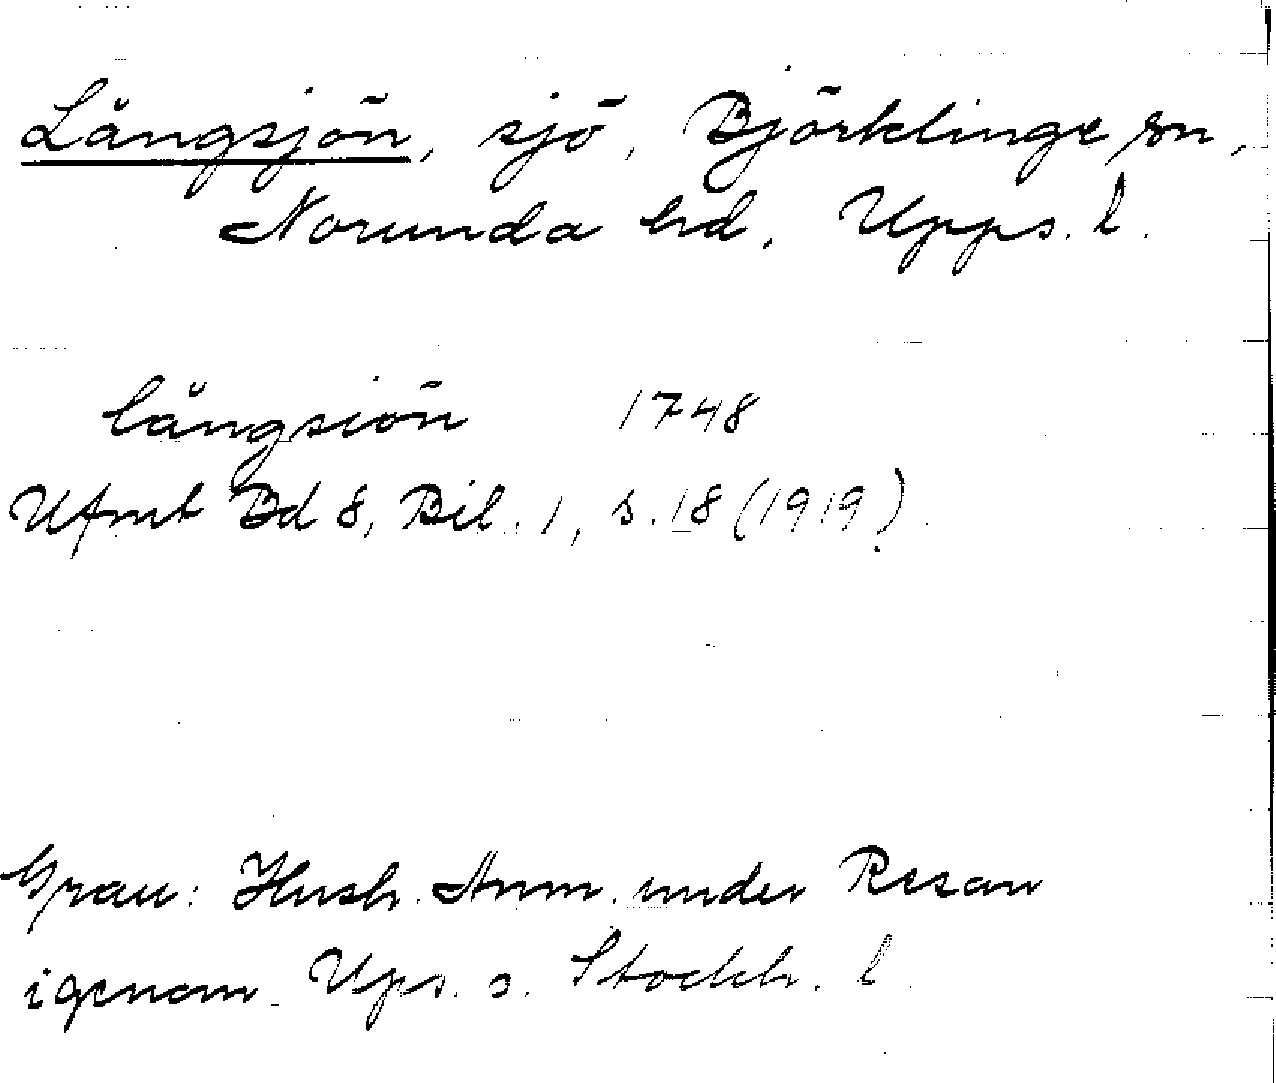 Långsjön, sjö, Björklinge sn,
Norunda hd, Upps. l.
långsiön 1748
Ufmt Bd 8, Bil. 1, s. 18 (1919).
Grau: Hush. Anm. under Resan
igenom Ups. o. Stockh. l.